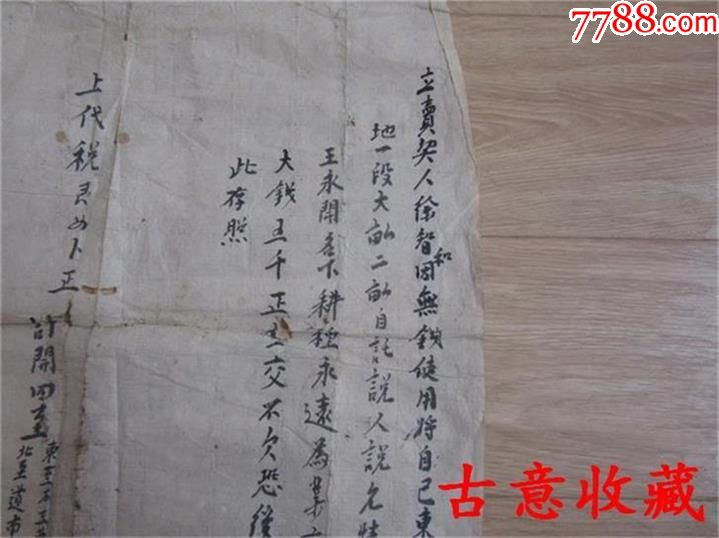 7788.com
中国收藏热线
立賣契人徐智和因無錢使用将自己東
地一段大畝二畝自託說人說允情
王永開名下耕種永遠為業
大錢五千正交不欠恐後
此存照
上代稅銀 下正
計開四至
東至
北至道南
古意收藏